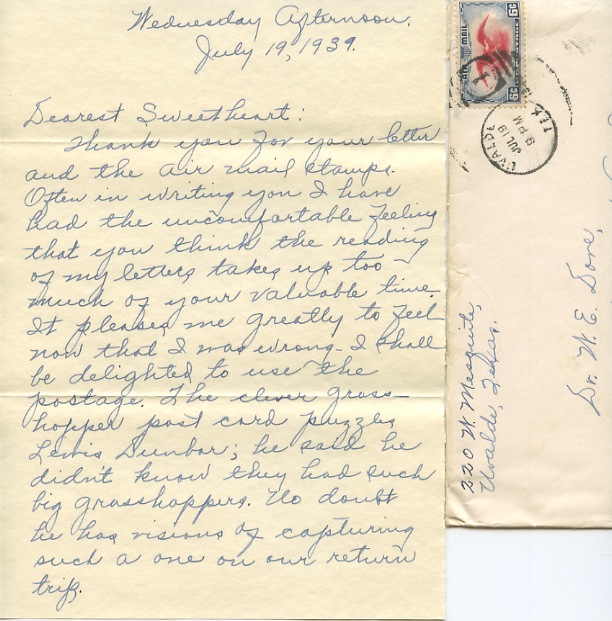 Wednesday Afternoon.
July 19, 1939.
Dearest Sweetheart:
Thank you for your letter
and the air mail stamps.
Often in writing you I have
had the uncomfortable feeling
that you think the reading
of my letters takes up too
much of your valuable time.
It pleases me greatly to feel
now that I was wrong. I shall
be delighted to use the
postage. The clever grass-
hopper post card puzzles
Lewis Dunbar; he said he
didn't know they had such
big grasshoppers. No doubt
he has visions of capturing
such a one on our return
trip.
AIR MAIL
6¢
6¢
UVALDE
JUL 19
9 PM
TEX
220 W. Mesquite,
Uvalde, Texas.
Dr. W. E. Dove,